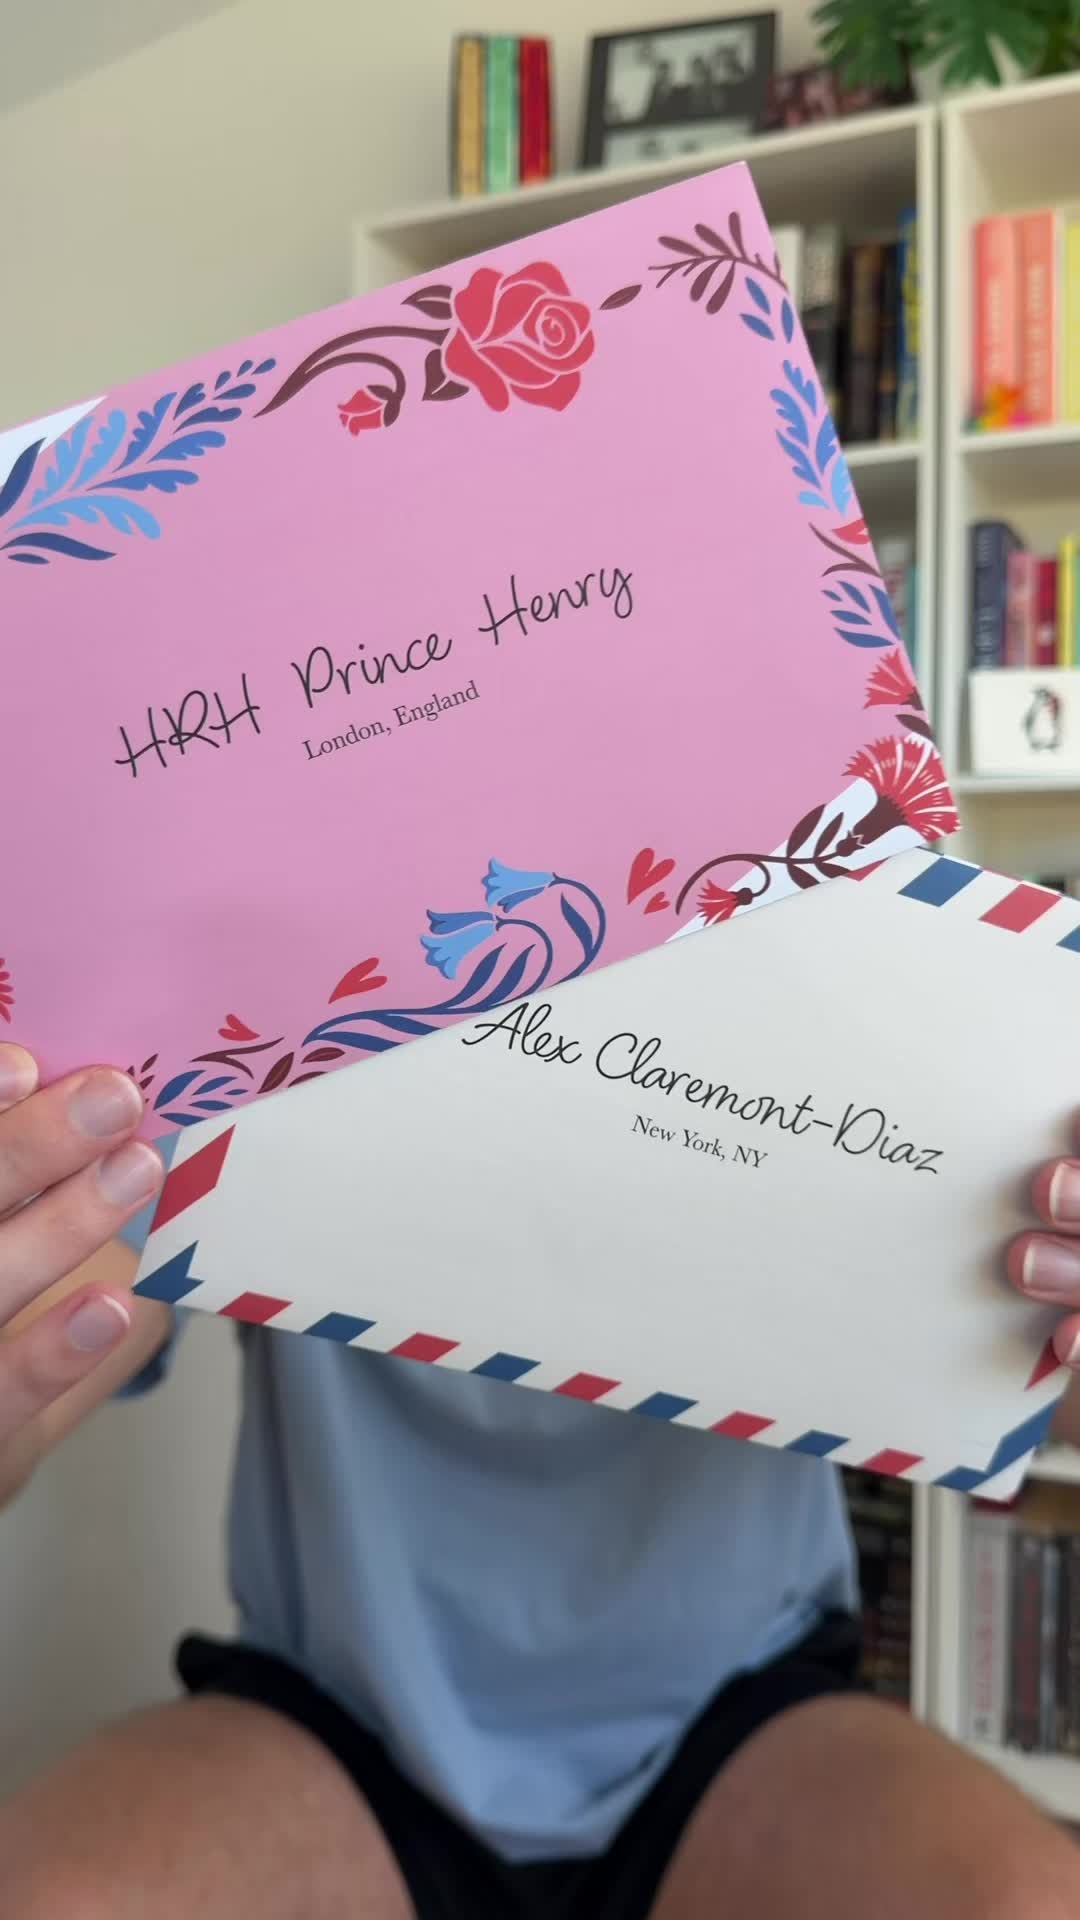 HRH Prince Henry
London, England
Alex Claremont-Diaz
New York, NY